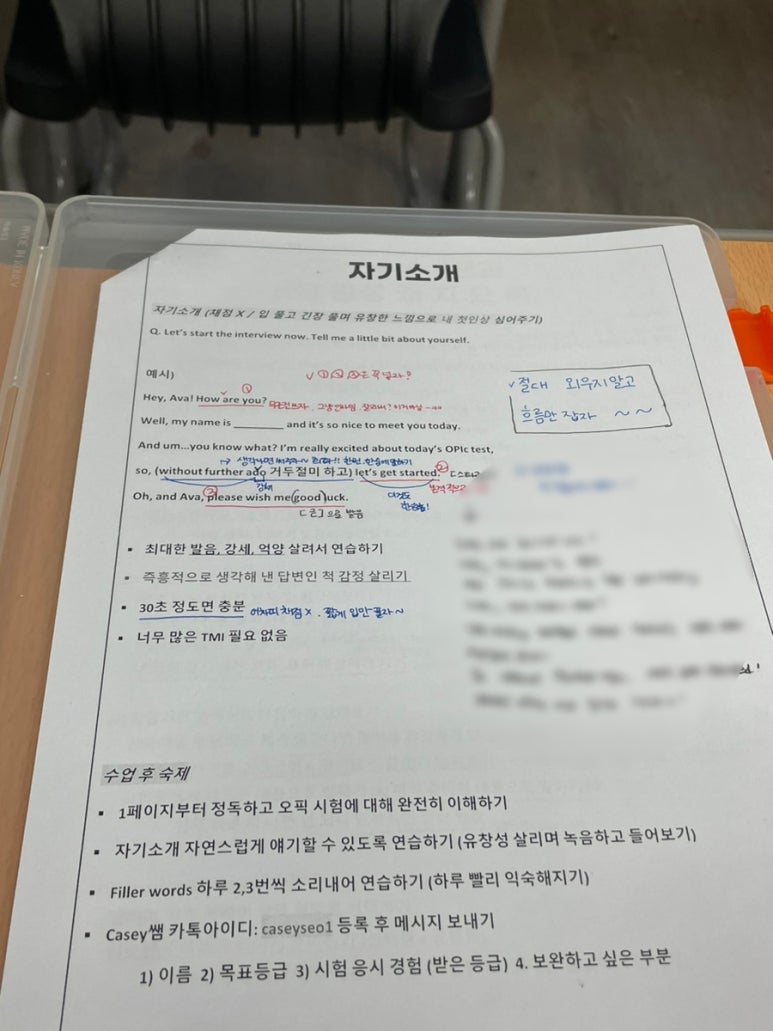 자기소개
자기소개 (채점 X / 입 풀고 긴장 풀며 유창한 느낌으로 내 첫인상 심어주기)
Q. Let's start the interview now. Tell me a little bit about yourself.
예시)
✓ ①②③은 꼭 넣자!
✓절대 외우지말고
흐름만 잡자 ~~
①
Hey, Ava! How are you?
Well, my name is __________ and it's so nice to meet you today.
And um...you know what? I'm really excited about today's OPIc test,
한번 한숨에 말하기
so, (without further ado 거두절미 하고) let's get started. ②
강세
이것도
한숨에!
Oh, and Ava, ③ please wish me good luck.
[ㄷ]으로 발음
▪ 최대한 발음, 강세, 억양 살려서 연습하기
▪ 즉흥적으로 생각해 낸 답변인 척 감정 살리기
▪ 30초 정도면 충분 어차피 채점 X. 짧게 입만 풀자~
▪ 너무 많은 TMI 필요 없음
수업 후 숙제
▪ 1페이지부터 정독하고 오픽 시험에 대해 완전히 이해하기
▪ 자기소개 자연스럽게 얘기할 수 있도록 연습하기 (유창성 살리며 녹음하고 들어보기)
▪ Filler words 하루 2,3번씩 소리내어 연습하기 (하루 빨리 익숙해지기)
▪ Casey쌤 카톡아이디: caseyseo1 등록 후 메시지 보내기
1) 이름 2) 목표등급 3) 시험 응시 경험 (받은 등급) 4. 보완하고 싶은 부분